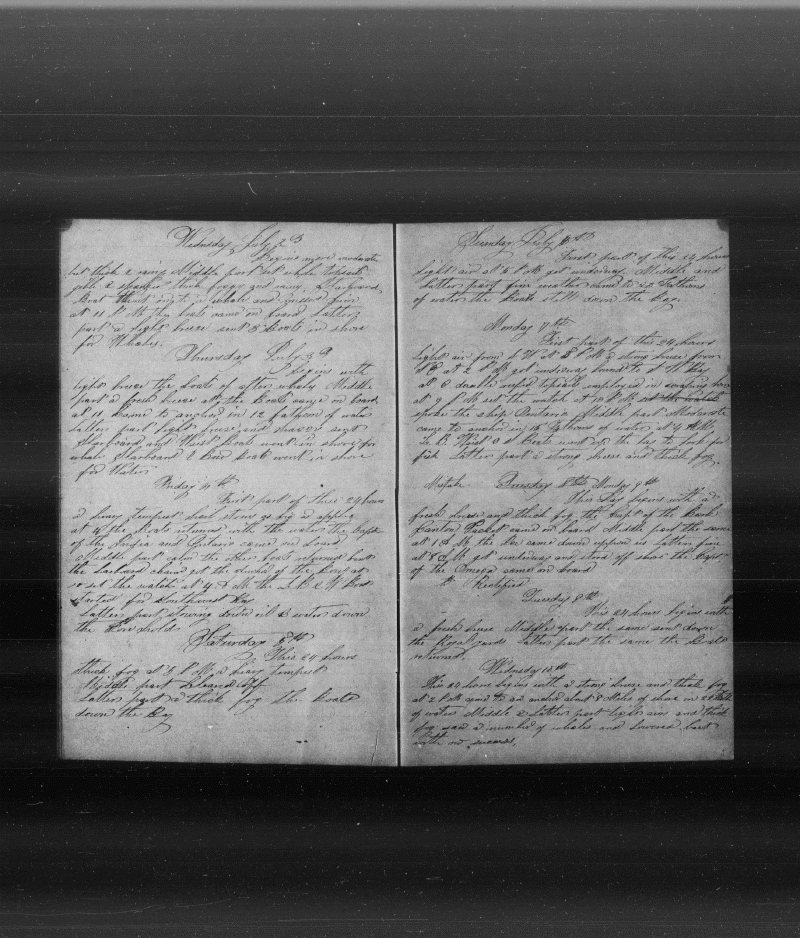 Wednesday July 2d
Begins more moderate
but thick & rainy Middle part set whole topsails
jibb & spanker thick foggy and rainy. Starboard
Boat went night a whale and missed from
at 11 P.M. the boats came on board Latter
part a light breeze sent 3 Boats in shore
for Whales.
Thursday July 3d
begins with
light breeze the boats of after whales Middle
part a fresh breeze at the Boats came on board
at 11 came to anchor in 12 fathom of water
latter part light breeze and
Starboard and Waist Boat went in shore for
whales Starboard & Bow Boat went in shore
for Water
Friday 4th
First part of these 24 hours
a heavy tempest hail stones as big as apples
at 4 the boats returned with the water the Capt
of the and came on board
Middle part calm the Boats returned
the larboard
set the watch at 4 A M the L B & W Boat
started for Southwest Bay
Latter part stowing down oil & water down
the Fore hold
Saturday 5th
This 24 hours
thick fog at 5 P M a heavy tempest
Middle part
Latter part a thick fog the Boats
down the Bay
Sunday July 6th
First part of this 24 hours
light air at 5 P M got underway. Middle and
latter part fine weather came to 22 Fathoms
of water the Boats still down the Bay.
Monday 7th
First part of this 24 hours
light air from S W at 5 P M a strong breeze from
at 2 P M got underway bound to S W Bay
at 6 double reefed topsails employed in
at 9 P M set the watch at 10 P M
spoke the ship Ontario Middle part Moderate
came to anchor in 16 fathoms of water at 4 A M
L B Waist & S Boats went up the bay to look for
fish Latter part a strong breeze and thick fog.
Mistake Tuesday 8th Monday 9th
This day begins with a
fresh breeze and thick fog the Capt of the Bark
Canton Packet came on board Middle part the same
at 10 A M the
at 8 A M got underway and stood off shore the Capt
of the Omega came on board
Rectified
Tuesday 8th
This 24 hours begins with
a fresh breeze Middle part the same sent down
the Royal yards latter part the same the Boats
returned.
Wednesday 10th
This 24 hours begins with a strong breeze and thick fog
at 2 P M came to an anchor about 8 Miles of shore in
of water Middle & Latter part light airs and thick
fog saw a number of whales and lowered but
with out success.